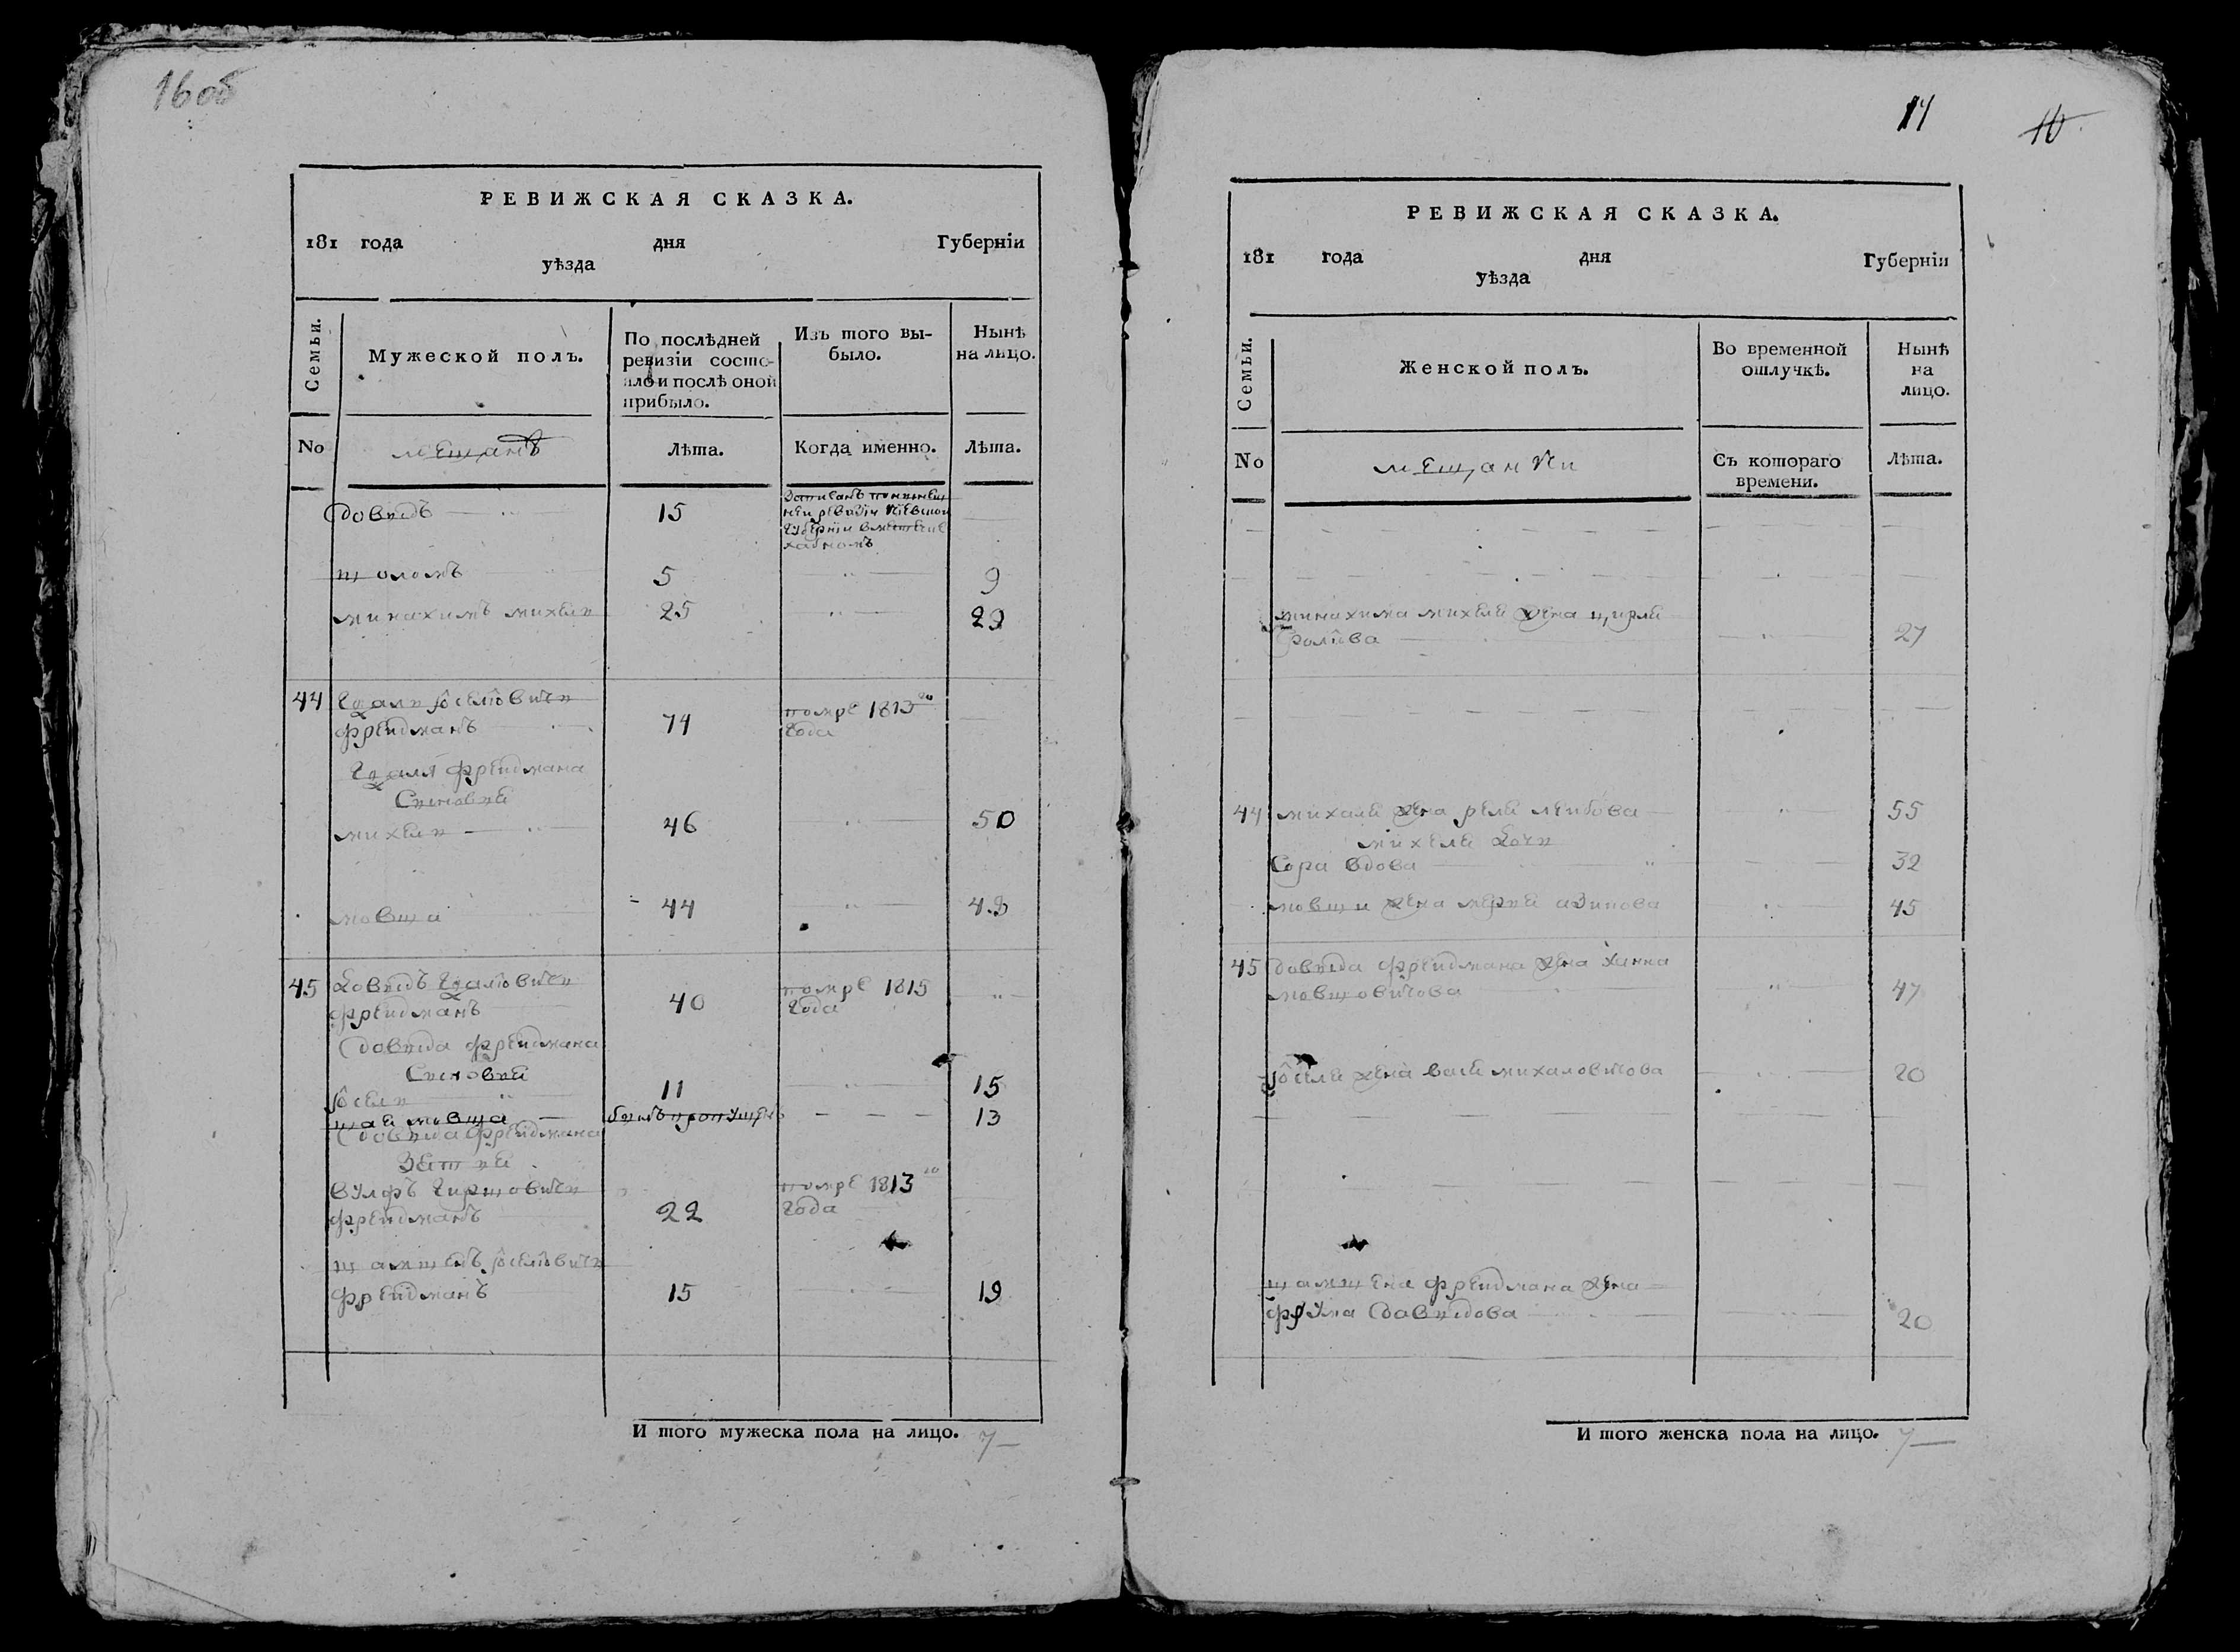 16об
РЕВИЖСКАЯ СКАЗКА.
181 года дня Губерніи
уѣзда
Семьи.
Мужеской полъ.
По послѣдней ревизіи состо-
яло и послѣ оной прибыло.
Изъ того вы-
было.
Нынѣ
на лицо.
No
мещанъ
Лѣта.
Когда именно.
Лѣта.
Довидъ 15 Записанъ понынеш
ней ревизіи Киевской
Губерніи вместечке
хабномъ
шоломъ 5 9
минахимъ михели 25 29
44 Гдали Іоселiовичъ
фреидманъ 74 помре 1813го
Года
Гдаля фреидмана
Сыновей
михели 46 50
мовша 44 48
45 Довидъ Гдалiовичъ
фреидманъ 40 помре 1815
Года
Довида фреидмана
Сыновей
Іосели 11 15
шая мовша былъ пропущенъ 13
Довида фреидмана
Зятей
вулфъ Гиршовичъ
фреидманъ 22 помре 1813го
Года
шамшенъ Іоселiовичъ
фреидманъ 15 19
И того мужеска пола на лицо. 7
17
16
РЕВИЖСКАЯ СКАЗКА.
181 года дня Губерніи
уѣзда
Семьи.
Женской полъ.
Во временной
отлучкѣ.
Нынѣ
на
лицо.
No
мещанки
Съ котораго
времени.
Лѣта.
минахима михеля жена цирля
27
44 михаля жена реля леибова 55
михеля дочь
Сора вдова 32
мовши жена 45
45 Довида фреидмана жена Ханна
мовшовичова 47
Іоселя жена бася михаловичова 20
шамшена фреидмана жена
фрума Давидова 20
И того женска пола на лицо. 7